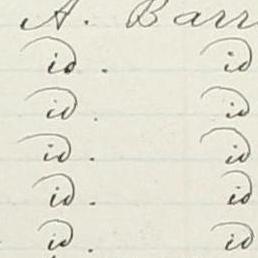 A. Barr
id. id
id. id
id. id
id. id
id. id